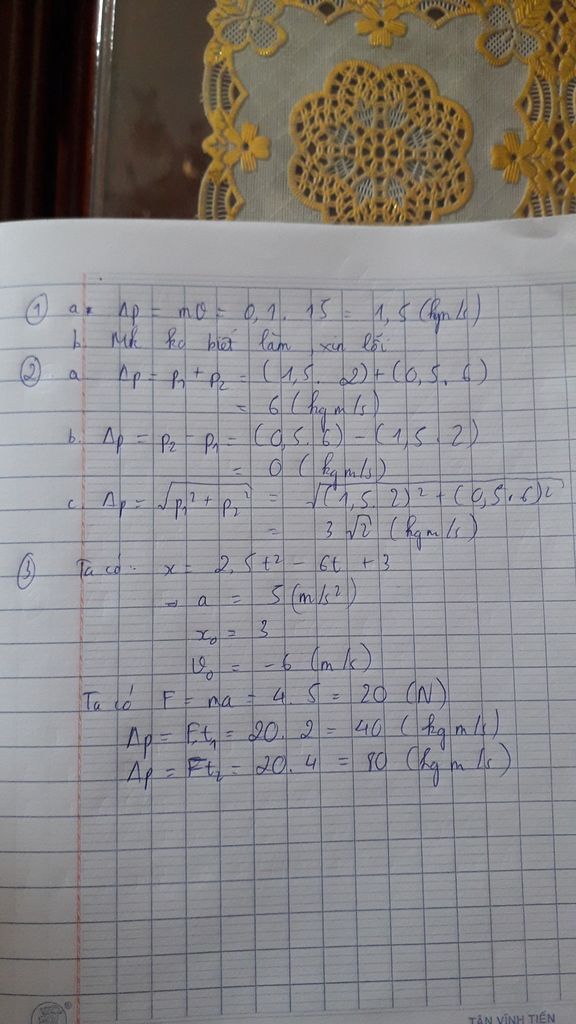 ① a. Δp = mv = 0,1 . 15 = 1,5 (kgm/s)
b. Mk ko biết làm, xin lỗi
② a Δp = p₁ + p₂ = (1,5 . 2) + (0,5 . 6)
= 6 (kg m/s)
b. Δp = p₂ - p₁ = (0,5 . 6) - (1,5 . 2)
= 0 (kg m/s)
c. Δp = √(p₁² + p₂²) = √((1,5 . 2)² + (0,5 . 6)²)
= 3√2 (kg m/s)
③ Ta có: x = 2,5t² - 6t + 3
→ a = 5 (m/s²)
x₀ = 3
v₀ = -6 (m/s)
Ta có F = ma = 4 . 5 = 20 (N)
Δp = Ft₁ = 20 . 2 = 40 (kg m/s)
Δp = Ft₂ = 20 . 4 = 80 (kg m/s)
TÂN VĨNH TIẾN